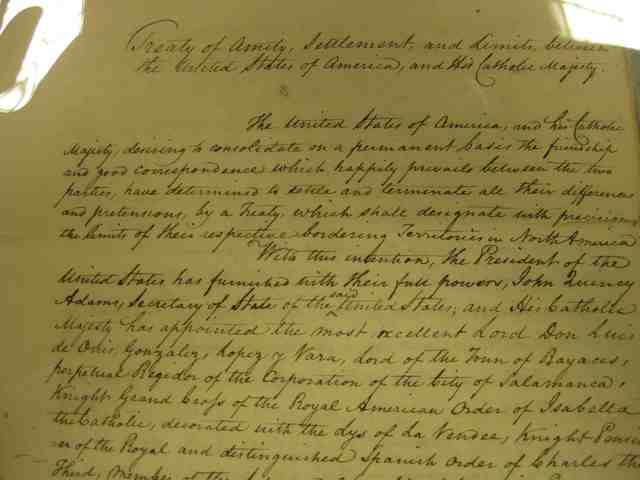 Treaty of Amity, Settlement, and Limits, between
the United States of America, and His Catholic Majesty.
The United States of America, and his Catholic
Majesty, desiring to consolidate on a permanent basis the friendship
and good correspondence which happily prevails between the two
parties, have determined to settle and terminate all their differences
and pretensions, by a Treaty, which shall designate with precision
the limits of their respective bordering Territories in North America
With this intention, the President of the
United States has furnished with their full powers, John Quincy
Adams, Secretary of State of the said United States; and His Catholic
Majesty has appointed the most excellent Lord Don Luis
de Onis, Gonzalez, Lopez y Vara, Lord of the Town of Rayaces,
perpetual Regidor of the Corporation of the City of Salamanca,
Knight Grand Cross of the Royal American Order of Isabella
the Catholic, decorated with the Lys of La Vendee, Knight
of the Royal and distinguished Spanish Order of Charles the
Third, Member of the